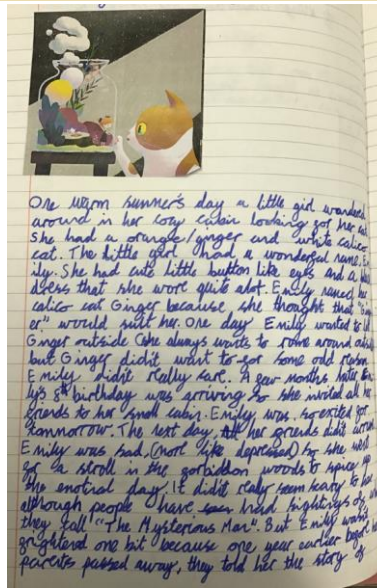 One warm summer's day a little girl wandered
around in her cozy cabin looking for her cat.
She had a orange/ginger and white calico
cat. The little girl had a wonderful name. Em
ily. She had cute little button like eyes and a
dress that she wore quite alot. Emily named her
calico cat Ginger because she thought that "Ging
er" would suit her. One day Emily wanted to let
Ginger outside (she always wants to rome around outside
but Ginger did'it want to for some odd reason.
Emily did'it really care. A few months later Em
ily's 8th birthday was arriving so she invited all her
friends to her small cabin. Emily was so exited for
tommorrow. The next day, her friends did'it arrive
Emily was sad, (more like depressed) so she went
for a stroll in the forbidden woods to spice up
the enotiral day. It did'it realy seem scary to her
although people have had sightings of
they call "The Mysterious Man". But Emily wasn't
frightened one bit because one year earlier before her
parents passed away, they told her the story of